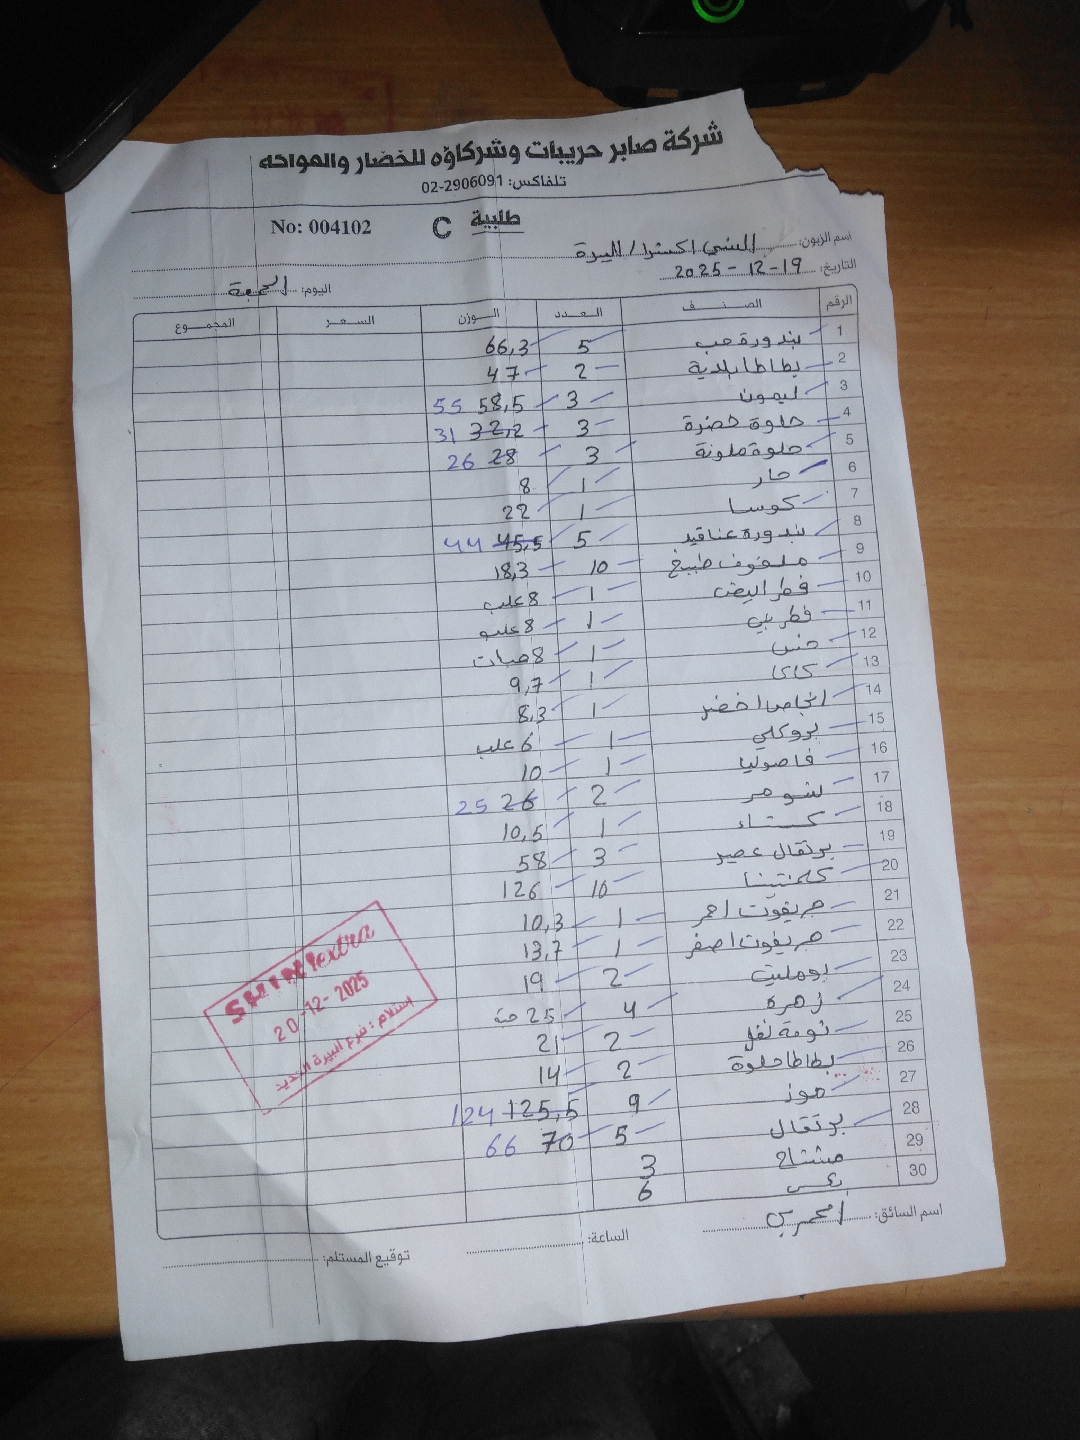 شركة صابر حريبات وشركاؤه للخضار والفواكه
تلفاكس: 02-2906091
طلبية C No: 004102
اسم الزبون: الشني اكسترا / البيرة
التاريخ: 19-12-2025
اليوم: الجمعة
الرقم الصنف العدد الوزن السعر المجموع
1 بندورة حب 5 66,3
2 بطاطا بلدية 2 47
3 ليمون 3 58,5 55
4 حلوة خضرة 3 32,2 31
5 حلوة ملونة 3 28 26
6 حار 1 8
7 كوسا 1 22
8 بندورة عناقيد 5 45,5 44
9 ملفوف طبيخ 10 18,3
10 فطر ابيض 1 8 علب
11 فطر بني 1 8 علب
12 خس 1 8 حبات
13 كاكا 1 9,7
14 انجاص اخضر 1 8,3
15 بروكلي 1 6 علب
16 فاصوليا 1 10
17 شومر 2 26 25
18 كستناء 1 10,5
19 برتقال عصير 3 58
20 كلمنتينا 10 126
21 جريفوت احمر 1 10,3
22 جريفوت اصفر 1 13,7
23 بومليت 2 19
24 زهرة 4 25 حبة
25 ثومة نفل 2 21
26 بطاطا حلوة 2 14
27 موز 9 125,5 124
28 برتقال 5 70 66
29 مشتاح 3
30 6
اسم السائق:
الساعة:
توقيع المستلم:
SHINI extra
20-12-2025
استلام: فرع البيرة الجديد